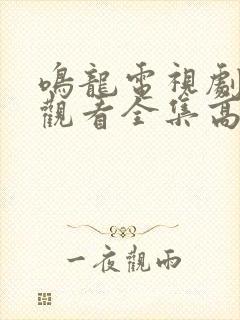 鳴龍電視劇
觀看全集高
一夜觀雨